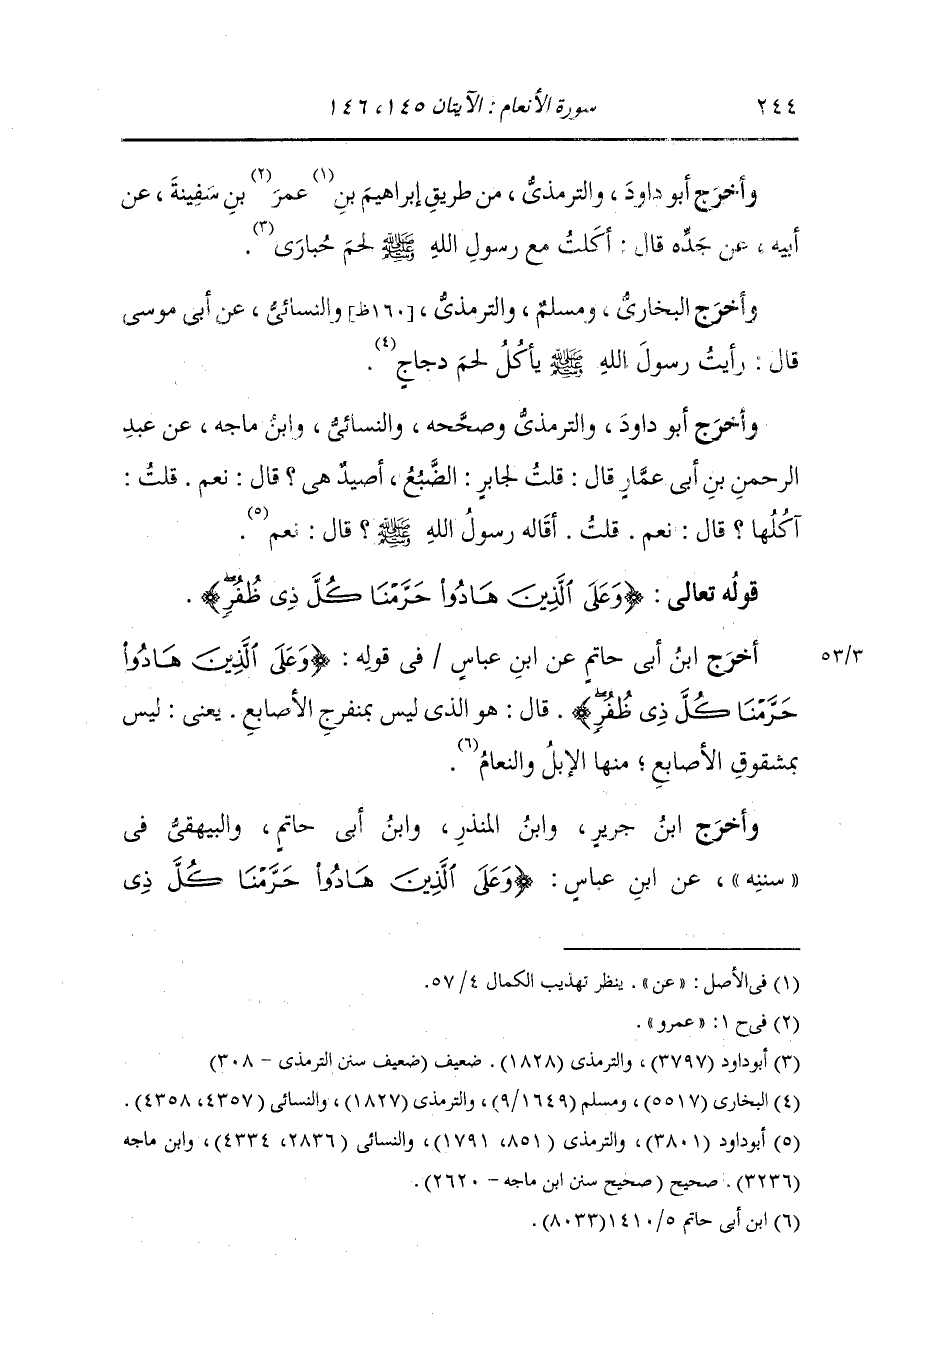 ٢٤٤ سورة الأنعام : الآيتان ١٤٥ ، ١٤٦
وأخرَج أبو داودَ ، والترمذىُّ ، من طريقِ إبراهيمَ بنِ(١) عمرَ(٢) بنِ سَفِينةَ ، عن
أبيه ، عن جَدِّه قال : أكَلتُ مع رسولِ اللهِ ﷺ لحمَ حُبارَى(٣) .
وأخرَج البخارىُّ ، ومسلمٌ ، والترمذىُّ ، [١٦٠ظ] والنسائىُّ ، عن أبى موسى
قال : رأيتُ رسولَ اللهِ ﷺ يأكُلُ لحمَ دجاجٍ(٤) .
وأخرَج أبو داودَ ، والترمذىُّ وصحَّحه ، والنسائىُّ ، وابنُ ماجه ، عن عبدِ
الرحمنِ بنِ أبى عمَّارٍ قال : قلتُ لجابرٍ : الضَّبُعُ ، أصيدٌ هى ؟ قال : نعم . قلتُ :
آكُلُها ؟ قال : نعم . قلتُ . أقَاله رسولُ اللهِ ﷺ ؟ قال : نعم(٥) .
قولُه تعالى : ﴿وَعَلَى ٱلَّذِينَ هَادُوا۟ حَرَّمْنَا كُلَّ ذِى ظُفُرٍۖ﴾ .
٥٣/٣ أخرَج ابنُ أبى حاتمٍ عن ابنِ عباسٍ / فى قولِه : ﴿وَعَلَى ٱلَّذِينَ هَادُوا۟
حَرَّمْنَا كُلَّ ذِى ظُفُرٍۖ﴾ . قال : هو الذى ليس بمنفرجِ الأصابعِ . يعنى : ليس
بمشقوقِ الأصابعِ ؛ منها الإبلُ والنعامُ(٦) .
وأخرَج ابنُ جريرٍ ، وابنُ المنذرِ ، وابنُ أبى حاتمٍ ، والبيهقىُّ فى
« سننِه » ، عن ابنِ عباسٍ : ﴿وَعَلَى ٱلَّذِينَ هَادُوا۟ حَرَّمْنَا كُلَّ ذِى
(١) فى الأصل : « عن » . ينظر تهذيب الكمال ٤/ ٥٧.
(٢) فى ح ١ : « عمرو » .
(٣) أبوداود (٣٧٩٧) ، والترمذى (١٨٢٨) . ضعيف (ضعيف سنن الترمذى - ٣٠٨)
(٤) البخارى (٥٥١٧) ، ومسلم (٩/١٦٤٩) ، والترمذى (١٨٢٧) ، والنسائى (٤٣٥٧، ٤٣٥٨) .
(٥) أبوداود (٣٨٠١) ، والترمذى (٨٥١، ١٧٩١) ، والنسائى (٢٨٣٦، ٤٣٣٤) ، وابن ماجه
(٣٢٣٦) . صحيح (صحيح سنن ابن ماجه - ٢٦٢٠) .
(٦) ابن أبى حاتم ١٤١٠/٥ (٨٠٣٣) .